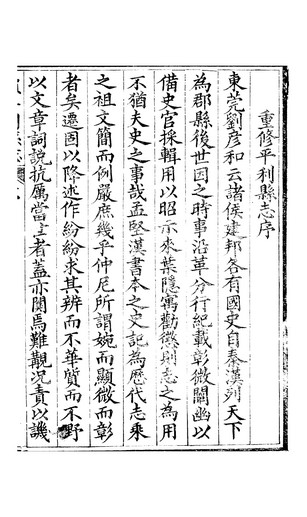 重修平利縣志序
東莞劉彥和云諸侯建邦各有國史自秦漢列天下
為郡縣後世因之時事沿革分行紀載彰微闡幽以
備史官採輯用以昭示來葉隱寓勸懲則志之為用
不猶夫史之事哉孟堅漢書本之史記為歷代志乘
之祖文簡而例嚴庶幾乎仲尼所謂婉而顯微而彰
者矣遷固以降述作紛紛求其辨而不華質而不野
以文章詞說抗厲當 者蓋亦閴焉難覯況責以譏